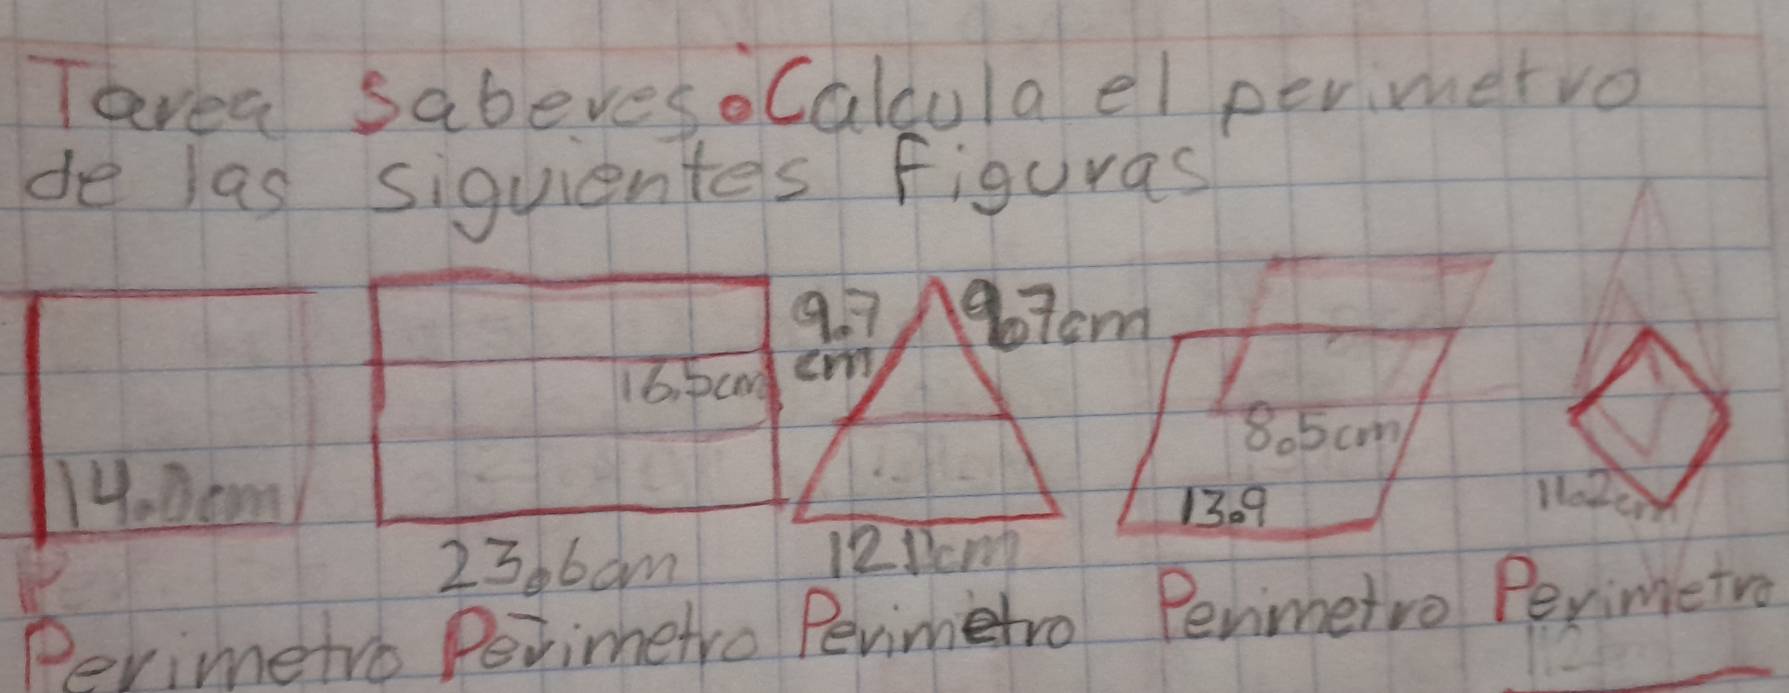 Tarea Saberes. Calcula el perimetro
de las siguientes figuras
9.7 cm
9.7cm
16.5cm
8.5cm
14.0cm
13.9
11.2cm
23.6cm
Perimetro Perimetro Perimetro Perimetro Perimetro